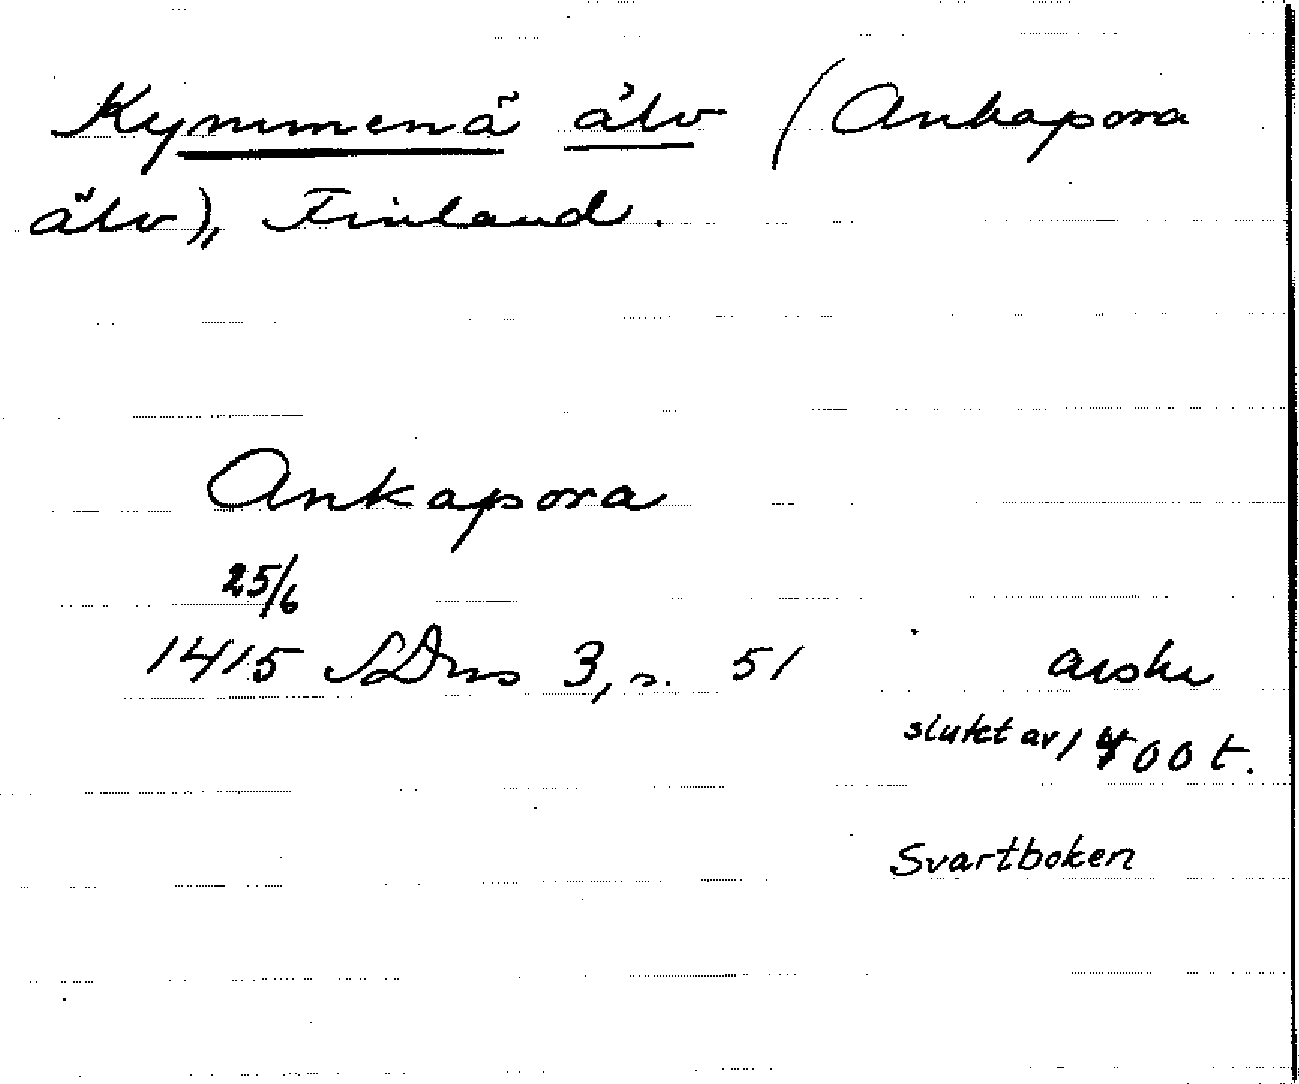 Kymmenä älv (Ankapora
älv), Finland.
Ankapora
25/6
1415 SDns 3, s. 51 avskr
slutet av 1400 t.
Svartboken